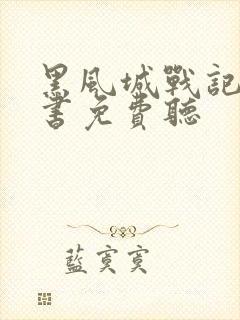 黑風城戰記
書免費聽
藍寞寞